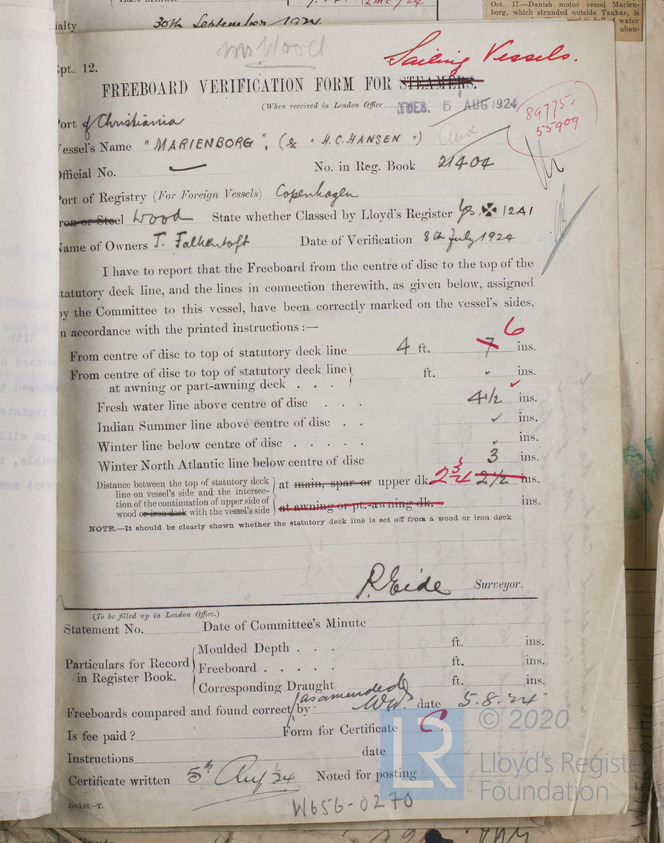 30th September 1924
Oct. 17.—Danish motor vessel Marien-
borg, which stranded outside Tankar, is
water
aban-
Mr Wood
Sailing Vessels.
pt. 12.
FREEBOARD VERIFICATION FORM FOR STEAMERS.
(When received in London Office TUES. 5 AUG 1924
89775.
55909
ort of Christiania
essel's Name "MARIENBORG", (& "H.C. HANSEN")
fficial No. No. in Reg. Book 21404
ort of Registry (For Foreign Vessels) Copenhagen
ron or Steel Wood State whether Classed by Lloyd's Register Yes ✠ 12A1
ame of Owners T. Falkentoft Date of Verification 8th July 1924
I have to report that the Freeboard from the centre of disc to the top of the
tatutory deck line, and the lines in connection therewith, as given below, assigned
y the Committee to this vessel, have been correctly marked on the vessel's sides,
n accordance with the printed instructions :—
6
From centre of disc to top of statutory deck line 4 ft. 7 ins.
From centre of disc to top of statutory deck line
at awning or part-awning deck . . . ft. ins.
Fresh water line above centre of disc . . . 4½ ins.
Indian Summer line above centre of disc . . ins.
Winter line below centre of disc . . . . . ins.
Winter North Atlantic line below centre of disc 3 ins.
Distance between the top of statutory deck
line on vessel's side and the intersec-
tion of the continuation of upper side of
wood or iron deck with the vessel's side
at main, spar or upper dk. 2¾ 2½ ins.
at awning or pt.-awning dk.
NOTE.—It should be clearly shown whether the statutory deck line is set off from a wood or iron deck
R. Eide Surveyor.
(To be filled up in London Office.)
Statement No. Date of Committee's Minute
Particulars for Record
in Register Book.
Moulded Depth . . . ft. ins.
Freeboard . . . . . ft. ins.
Corresponding Draught ft. ins.
as amended
Freeboards compared and found correct by date 5.8.24
Is fee paid? Form for Certificate C.
Instructions date
Certificate written 5th Aug '24 Noted for posting
W656-0270
LR
© 2020
Lloyd's Register
Foundation